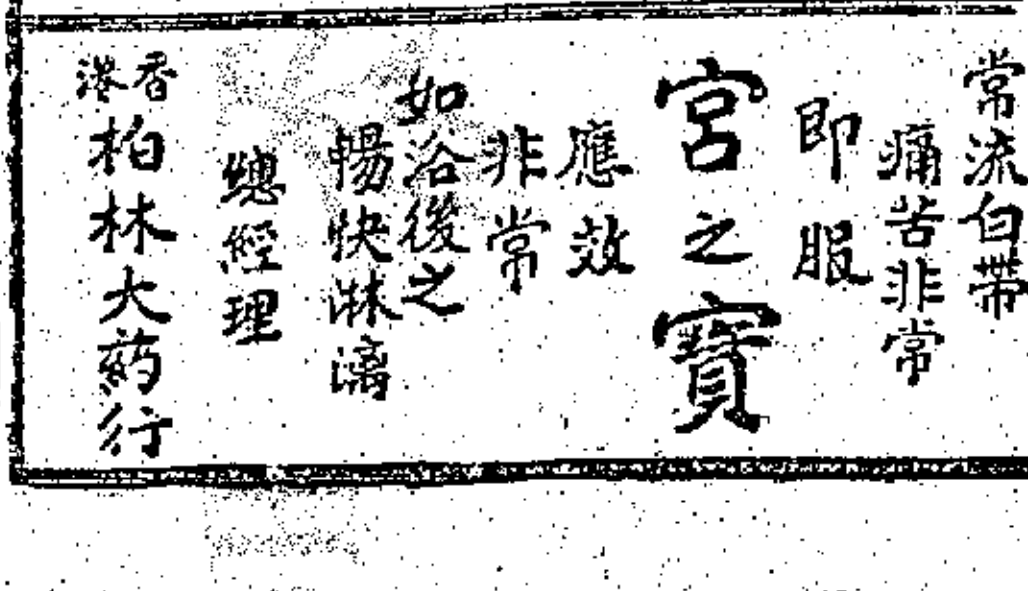 常流白帶
痛苦非常
即服
宮之寶
應效
非常
如浴後之
暢快淋漓
總經理
香港
柏林大葯行